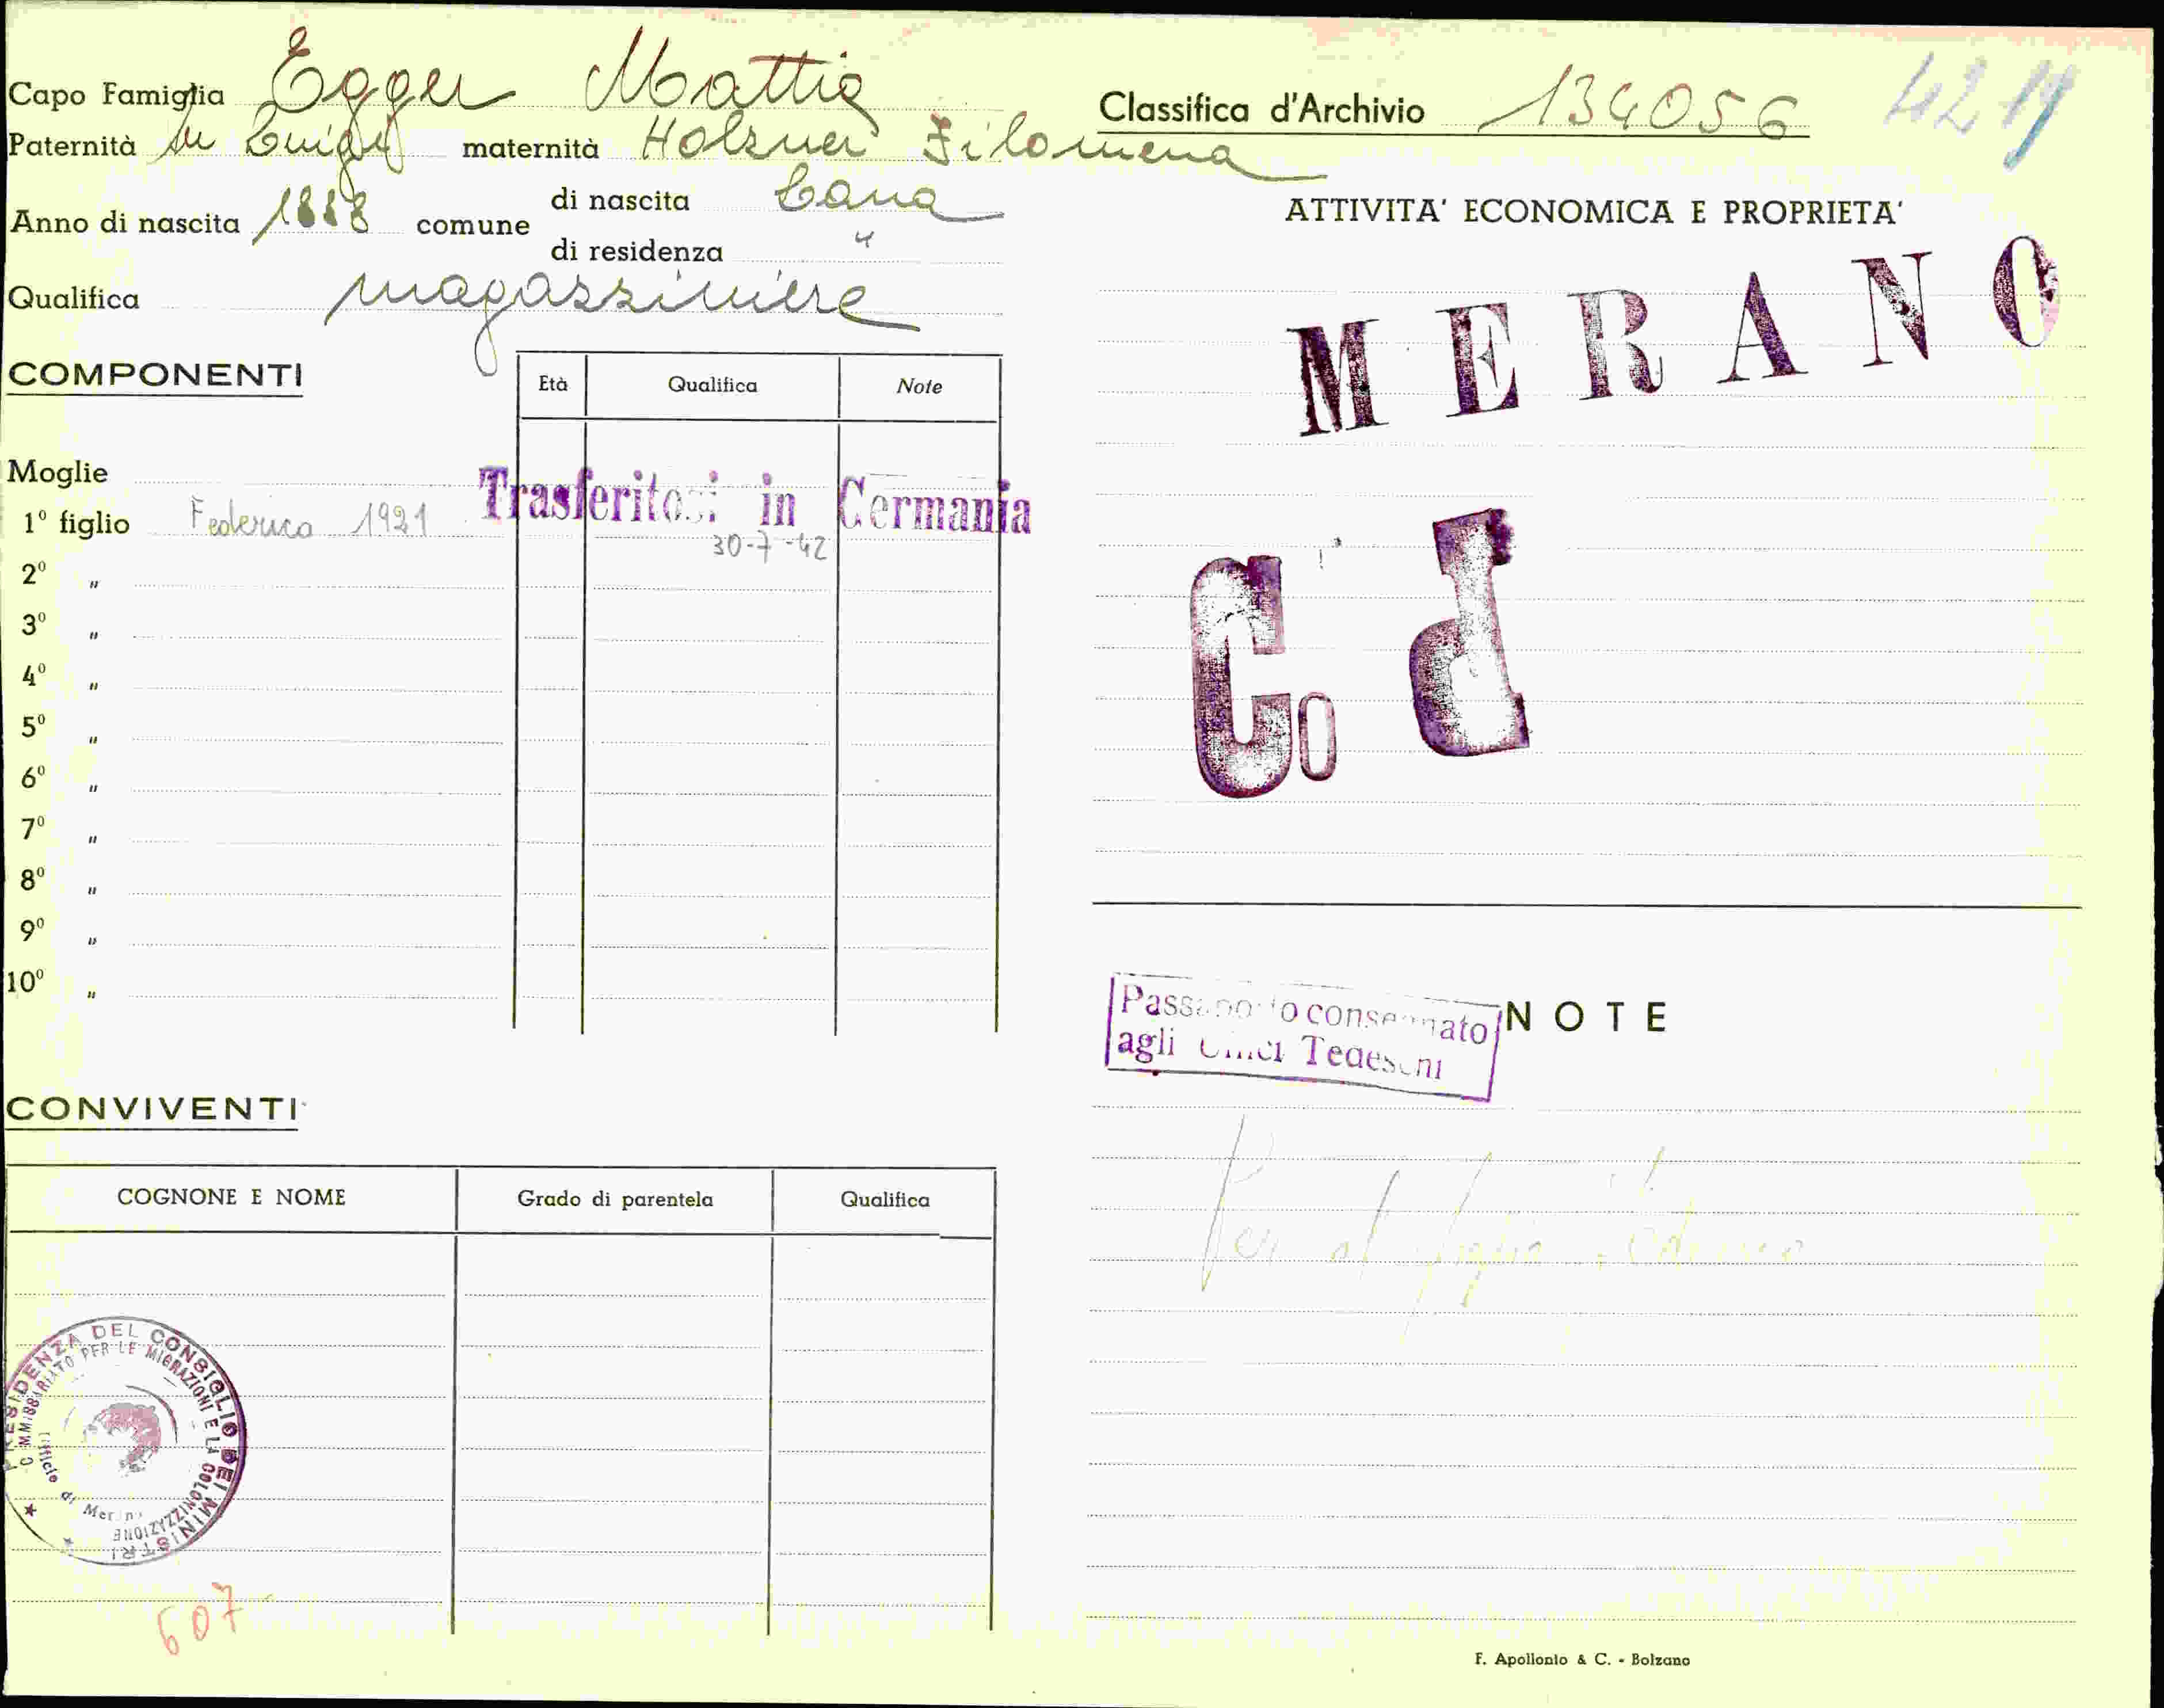 Capo Famiglia Egger Mattia
Paternità fu Luigi maternità Holzner Filomena
Anno di nascita 1888 comune di nascita Lana
di residenza "
Qualifica magazziniere
COMPONENTI
Età Qualifica Note
Moglie
Trasferitosi in Germania
1º figlio Federico 1921
30-7-42
2º "
3º "
4º "
5º "
6º "
7º "
8º "
9º "
10º "
CONVIVENTI
COGNONE E NOME Grado di parentela Qualifica
PRESIDENZA DEL CONSIGLIO DEI MINISTRI
COMMISSARIATO PER LE MIGRAZIONI E LA COLONIZZAZIONE
Ufficio di Merano
607
Classifica d'Archivio 134056
4219
ATTIVITA' ECONOMICA E PROPRIETA'
MERANO
Co d
Passaporto consegnato
agli Uffici Tedeschi
NOTE
Per il figlio Federico
F. Apollonio & C. - Bolzano